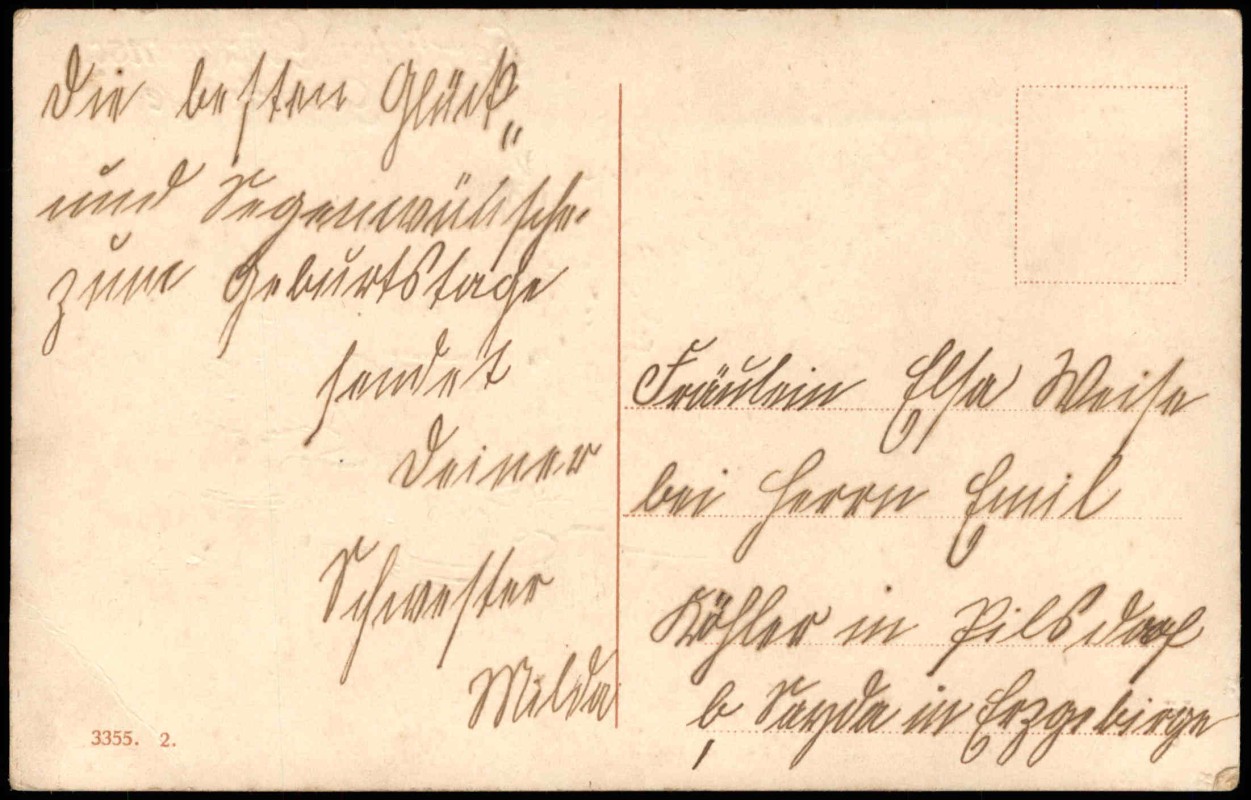 Die besten Glück„
und Segenwünsche
zum Geburtstage
sendet
Deiner
Schwester
Milda
3355. 2.
Fräulein Elsa Weise
bei Herrn Emil
Köhler in Pilsdorf
b Sayda in Erzgebirge